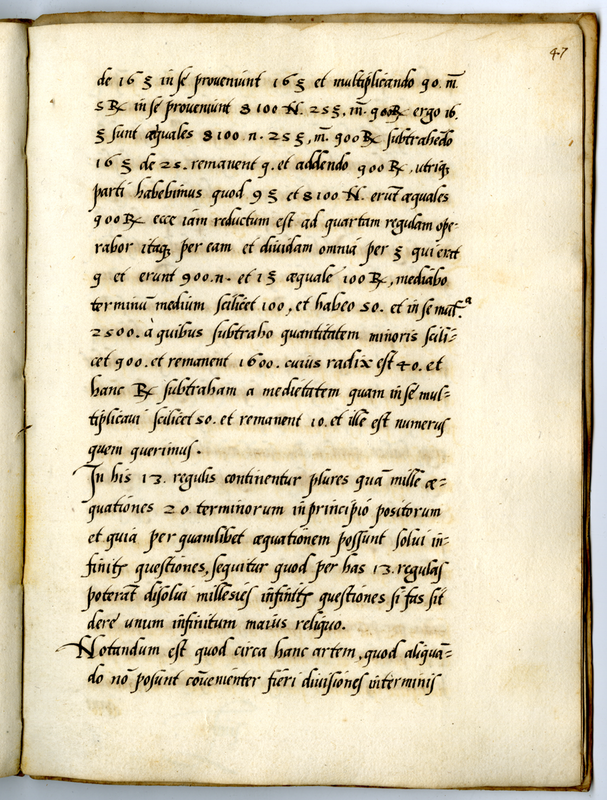 47
de 16 ʒ in se proveniunt 16 ʒ et multiplicando 90. m̃.
5 ℞ in se proveniunt 8100 N. 25 ʒ, m̃. 900 ℞ ergo 16.
ʒ sunt æquales 8100 n. 25 ʒ, m̃. 900 ℞ subtrahēdo
16 ʒ de 25. remanent 9. et addendo 900 ℞, utriqꝫ
parti habebimus quod 9 ʒ et 8100 N. erūt æquales
900 ℞ ecce iam reductum est ad quartam regulam ope-
rabor itaqꝫ per eam et dividam omnia per ʒ qui erāt
9 et erunt 900. n. et 1 ʒ æquale 100 ℞, mediabo
terminū medium scilicet 100, et habeo 50. et in se mul.ᵃ
2500. à quibus subtraho quantitatem minoris scili-
cet 900. et remanent 1600. cuius radix est 40. et
hanc ℞ subtraham a medietatem quam in sé mul=
tiplicavi scilicet 50. et remanent 10. et ille est numerus
quem querimus.
In his 13. regulis continentur plures quā mille æ=
quationes 20 terminorum in principió positorum
et quia per quamlibet æquationem possunt solui in=
finitę questiones, sequitur quod per has 13. regulas
poterāt disolui millesies infinitę questiones si fas sit
dere unum infinitum maius reliquo.
Notandum est quod circa hanc artem, quod aliquā=
do nō posunt cōvenienter fieri divisiones in terminis